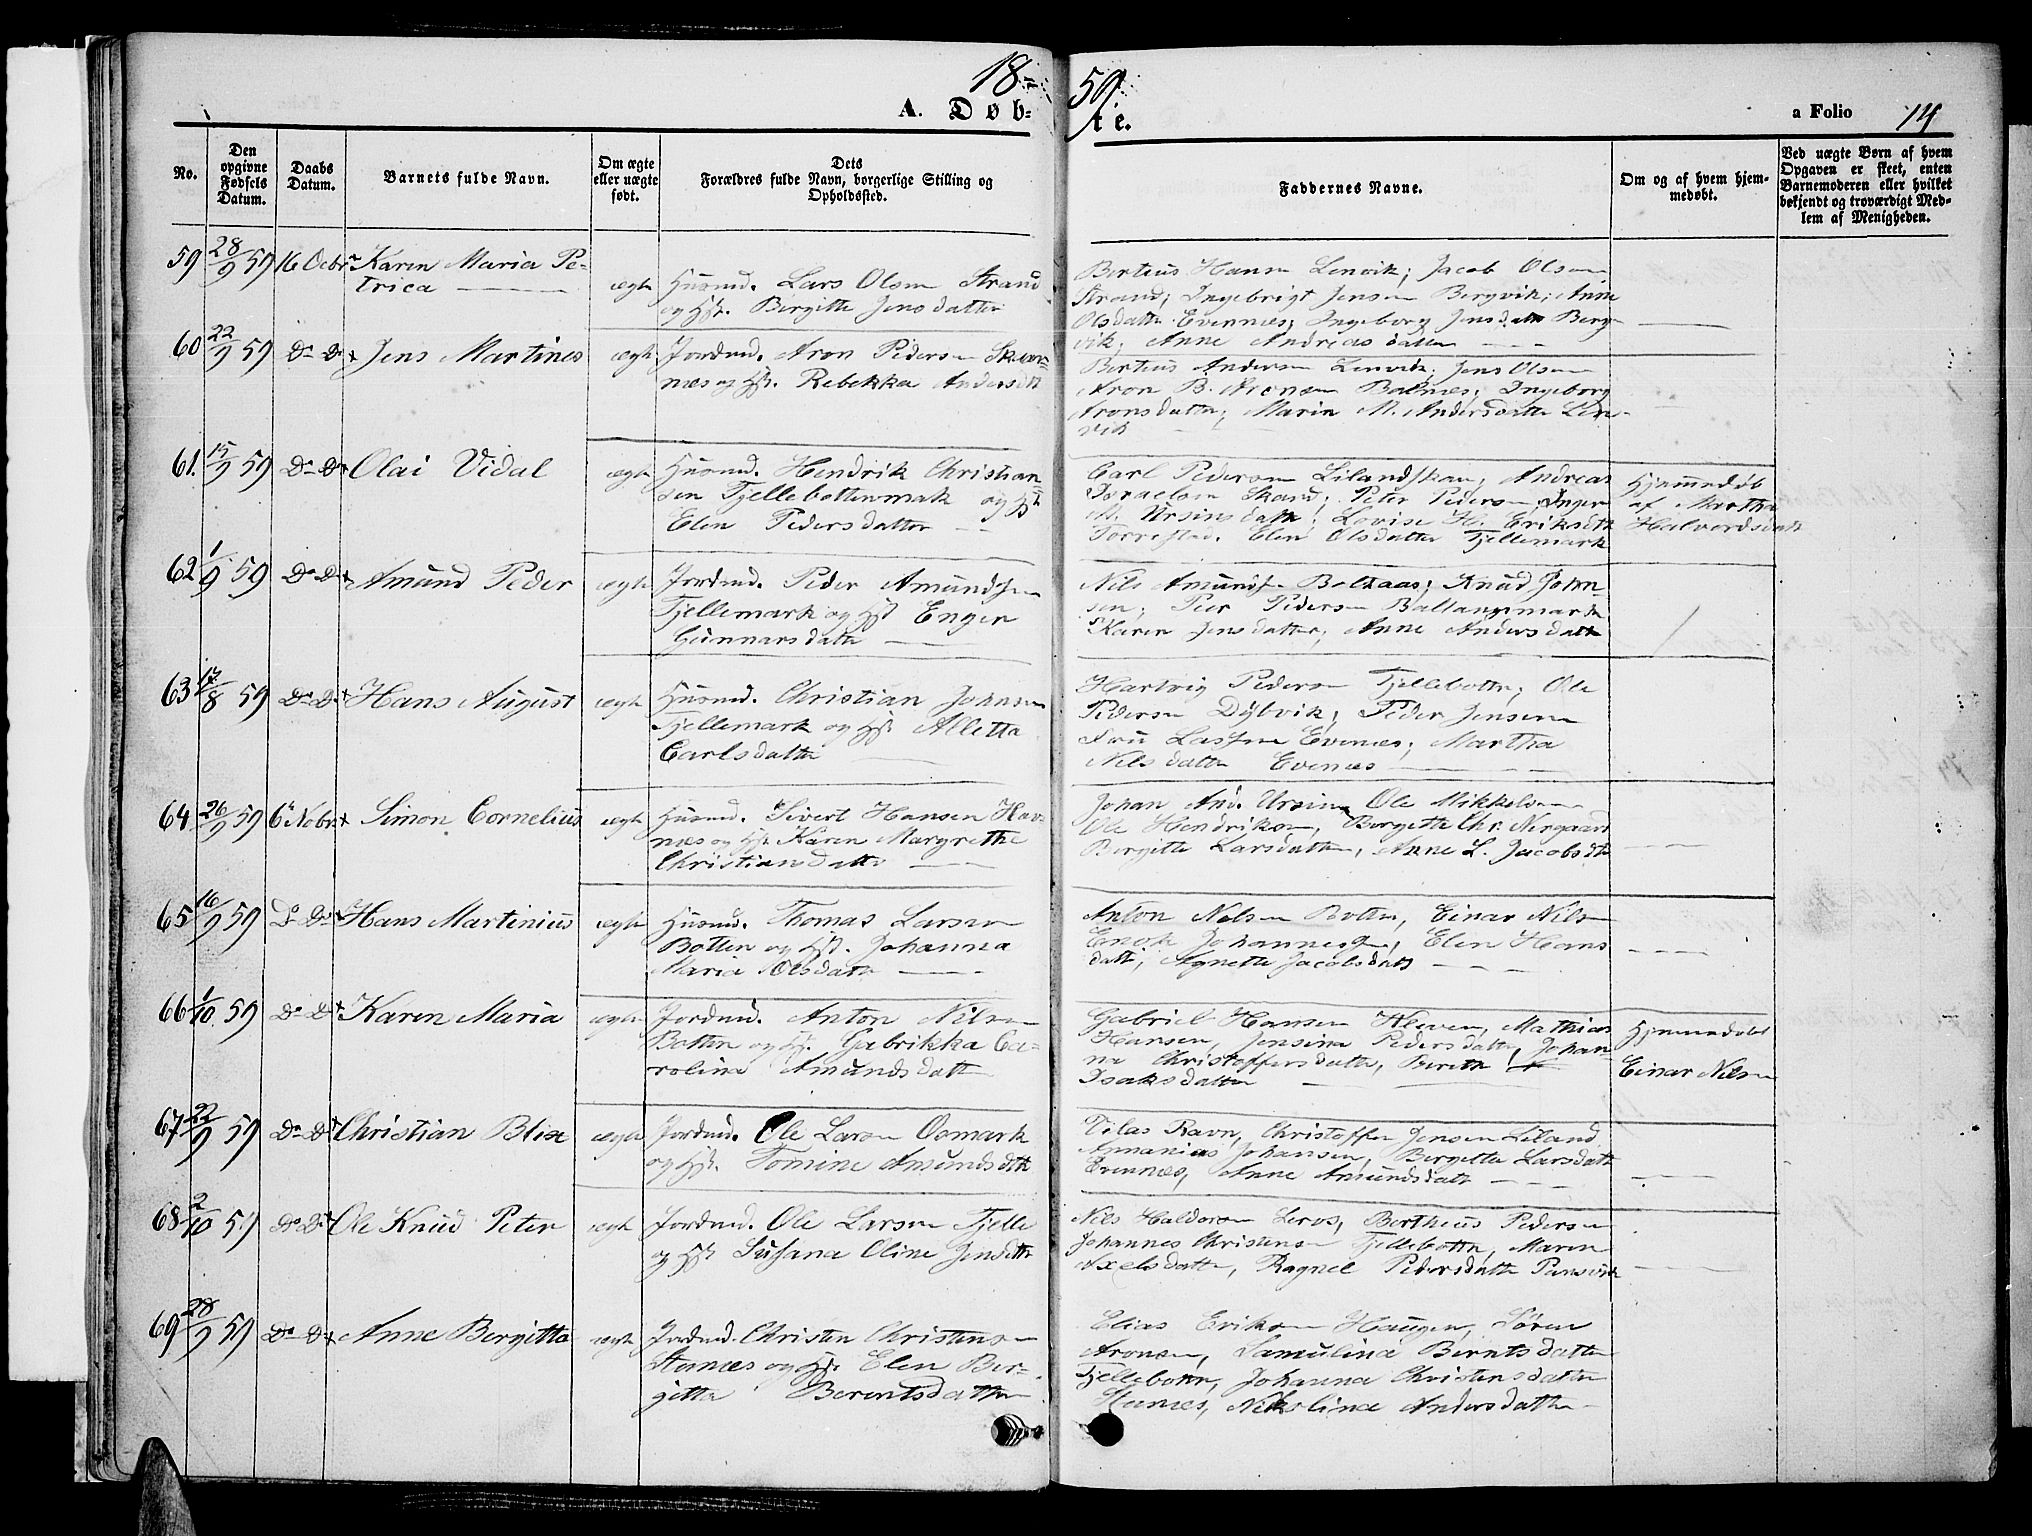 18
59.
A. Døb-
te.
a Folio 14
No.
Den opgivne Fødsels Datum.
Daabs Datum.
Barnets fulde Navn.
Om ægte eller uægte født.
Dets Forældres fulde Navn, borgerlige Stilling og Opholdssted.
Faddernes Navne.
Om og af hvem hjemmedøbt.
Ved uægte Børn af hvem Opgaven er skeet, enten Barnemoderen eller hvilket bekjendt og troværdigt Medlem af Menigheden.
59 28/9 59 16 Octbr Karen Maria Pe-
trica
ægte
Husmd. Lars Olsen Strand
og Hst. Birgitte Jensdatter
Bertius Hansen Lenvik; Jacob Olsen
Strand; Ingebrigt Jensen Bergvik; Anne
Olsdatter Evennes; Ingeborg Jensdatter Berg-
vik, Anne Andreasdatter
60 22/9 59 Do Do Jens Martines
ægte
Jordmd. Aron Pedersen Skar-
nes og Hst. Rebekka Andersdtr
Bertius Andersen Lenvik; Jens Olsen
Aron B. Aronsen Balnes; Ingeborg
Aronsdatter; Marin M. Andersdatter Len-
vik
61. 15/9 59 Do Do Olai Vidal
ægte
Husmd. Hendrik Christian-
sen Tjellebottenmark og Hst
Elen Pedersdatter
Carl Pedersen Lilandskar, Andreas
Israelsen Skard; Peter Pedersen, Inger
M. Ursinsdatter; Lovise H. Eriksdtr
Forrestad, Elen Olsdatter Tjellemark
Hjemmedøbt
af Martha
Halvordsdatt
62 1/9 59 Do Do Amund Peder
ægte
Jordmd. Peder Amundsen
Tjellemark og Hst Enger
Gunnarsdatter
Nils Amundsen Boltaas; Knud John-
sen; Peer Pedersen Ballangsmark
Karen Jensdatter; Anne Andersdatter
63 14/8 59 Do Do Hans August
ægte
Husmd. Christian Johnsen
Tjellemark og Hst Alletta
Carlsdatter
Hartvig Pedersen Tjellebotten; Ole
Pedersen Dybvik; Peder Jensen
Fru Lassen Evenes; Martha
Nilsdatter Evenes
64 26/9 59 6 Nobr Simon Cornelius
ægte
Husmd. Sivert Hansen Hav-
nes og Hst Karen Margrethe
Christiansdatter
Johan And. Ursin, Ole Mikkelsen
Ole Hendriksen, Bergette Chr. Nergaard
Birgitte Larsdatter, Anne L. Jacobsdtr
65 16/9 59 Do Do Hans Martinius
ægte
Husmd. Thomas Larsen
Botten og Hst. Johanna
Maria Olsdatter
Anton Nelsen Botten, Einar Nils
Enok Johannesen, Elen Hans
datter, Agnette Jacobsdatt
66 1/10. 59 Do Do Karen Maria
ægte
Jordmd. Anton Nilsen
Botten og Hst. Gabrikka Ca-
rolina Amundsdatter
Gabriel Hansen Kleven, Mathias
Hansen, Jensina Pedersdatter, Johan-
na Christoffersdatter, Bereth
Isaksdatter
Hjemmedøbt
Einar Nilsen
67 22/9 59 Do Do Christian Blix
ægte
Jordmd. Ole Larsen Osmark
og Hst. Tomine Amundsdtr
Vilas Ravn, Christoffer Jensen Liland
Annanias Johansen, Bergitte Larsdatter
Evennes, Anne Amundsdatt
68 2/10 59 Do Do Ole Knud Peter
ægte
Jordmd. Ole Larsen Tjelle
og Hst Susana Oline Jensdtr
Nils Haldorsen Leros, Bertheus Pedersen
Johannes Christensen Tjellebotten, Maren
Axelsdatter, Ragnel Pedersdatter Pansvik
69 28/9 59 Do Do Anne Bergitta
ægte
Jordmd. Christen Christensen
Stanæs og Hst. Elen Ber-
gitta Berentsdatter
Elias Eriksen Haugen, Søren
Aronsen, Samulina Berntsdatter
Tjellebotten, Johanna Christensdatter
Stanæs, Nikolina Andersdatter